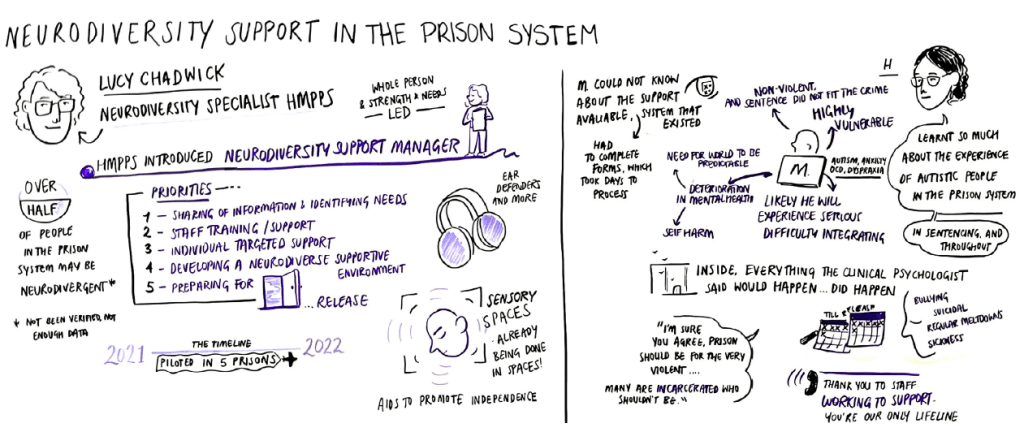 NEURODIVERSITY SUPPORT IN THE PRISON SYSTEM
LUCY CHADWICK
NEURODIVERSITY SPECIALIST HMPPS
WHOLE PERSON
& STRENGTH & NEEDS
LED
HMPPS INTRODUCED NEURODIVERSITY SUPPORT MANAGER
OVER
HALF
OF PEOPLE
IN THE PRISON
SYSTEM MAY BE
NEURODIVERGENT*
* NOT BEEN VERIFIED, NOT
ENOUGH DATA
PRIORITIES
1 - SHARING OF INFORMATION & IDENTIFYING NEEDS
2 - STAFF TRAINING / SUPPORT
3 - INDIVIDUAL TARGETED SUPPORT
4 - DEVELOPING A NEURODIVERSE SUPPORTIVE
ENVIRONMENT
5 - PREPARING FOR
...RELEASE
EAR
DEFENDERS
AND MORE
2021 THE TIMELINE 2022
PILOTED IN 5 PRISONS
SENSORY
SPACES
. ALREADY
BEING DONE
IN SPACES!
AIDS TO PROMOTE INDEPENDENCE
M. COULD NOT KNOW
ABOUT THE SUPPORT
AVALIABLE, SYSTEM THAT
EXISTED
HAD
TO COMPLETE
FORMS, WHICH
TOOK DAYS TO
PROCESS
NON-VIOLENT,
AND SENTENCE DID NOT FIT THE CRIME
HIGHLY
VULNERABLE
NEED FOR WORLD TO BE
PREDICTABLE
M.
AUTISM, ANXITY
OCD, DYSPRAXIA
DETERIORATION
IN MENTAL HEALTH
SELF HARM
LIKELY HE WILL
EXPERIENCE SERIOUS
DIFFICULTY INTEGRATING
H
LEARNT SO MUCH
ABOUT THE EXPERIENCE
OF AUTISTIC PEOPLE
IN THE PRISON SYSTEM
IN SENTENCING, AND
THROUGHOUT
INSIDE, EVERYTHING THE CLINICAL PSYCHOLOGIST
SAID WOULD HAPPEN... DID HAPPEN
BULLYING
SUICIDAL
REGULAR MELTDOWNS
SICKNESS
"I'M SURE
YOU AGREE, PRISON
SHOULD BE FOR THE VERY
VIOLENT ....
MANY ARE INCARCERATED WHO
SHOULDN'T BE."
THANK YOU TO STAFF
WORKING TO SUPPORT.
YOU'RE OUR ONLY LIFELINE